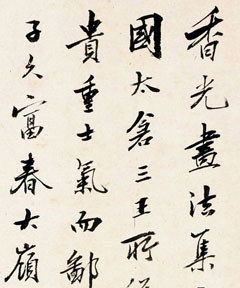 香光畫法集
國太倉三王所
貴重士氣而鄙
子久富春大嶺